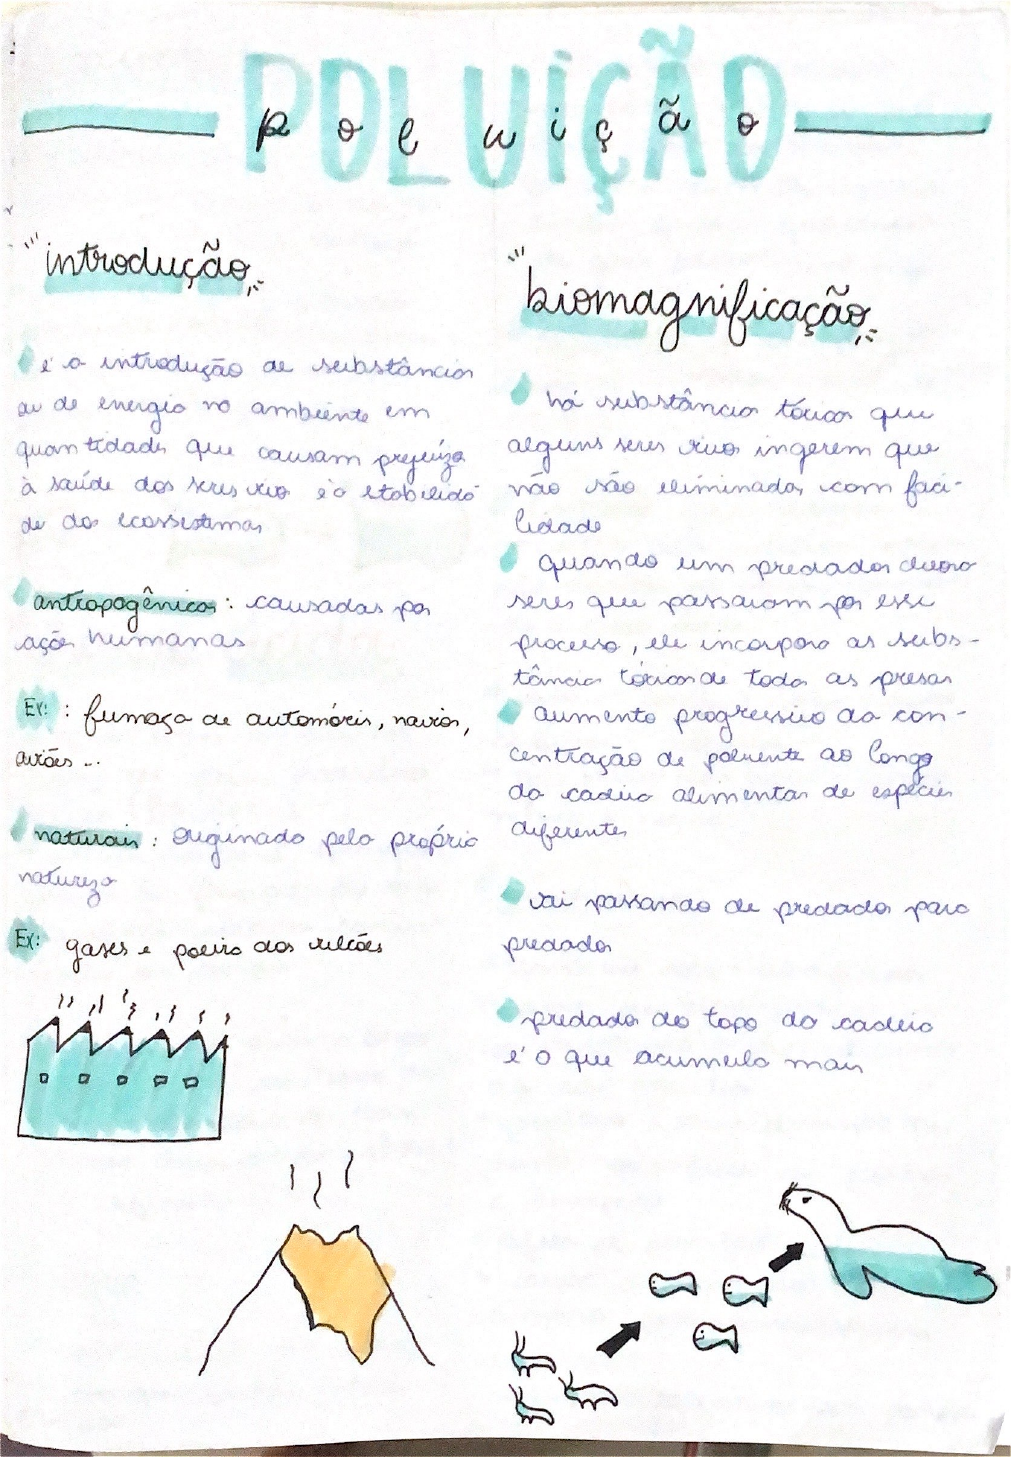 POLUIÇÃO
poluição
introdução
é a introdução de substâncias
ou de energia no ambiente em
quantidades que causam prejuízo
à saúde dos seres vivos e à estabilida
de dos ecossistemas
antropogênicos: causadas por
ações humanas
Ex: : fumaça de automóveis, navios,
aviões...
naturais: originado pela própria
natureza
Ex: gases e poeira dos vulcões
biomagnificação
há substâncias tóxicas que
alguns seres vivos ingerem que
não são eliminadas com faci-
lidade
quando um predador devora
seres que passaram por esse
processo, ele incorpora as subs-
tâncias tóxicas de todas as presas
aumento progressivo da con-
centração de poluente ao longo
da cadeia alimentar de espécies
diferentes
vai passando de predador para
predador
predador do topo da cadeia
é o que acumula mais